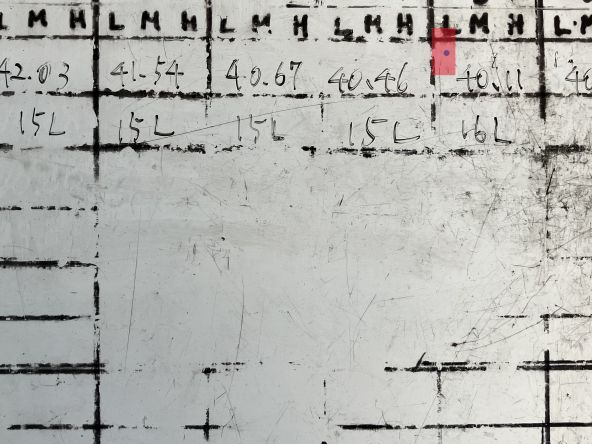 L M H L M H L M H L M H L M H L M
42.03 41.54 40.67 40.46 40.11 40
15L 15L 15L 15L 16L